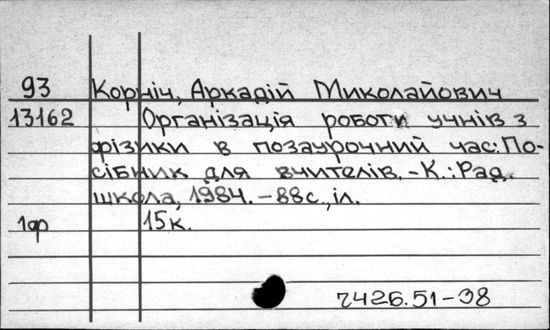 93 Корніч, Аркадій Миколайович
13162 Організація роботи учнів з
фізики в позаурочний час: По-
сібник для вчителів. - К.: Рад.
школа, 1984. - 88с., іл.
1ф 15к.
ч426.51-98